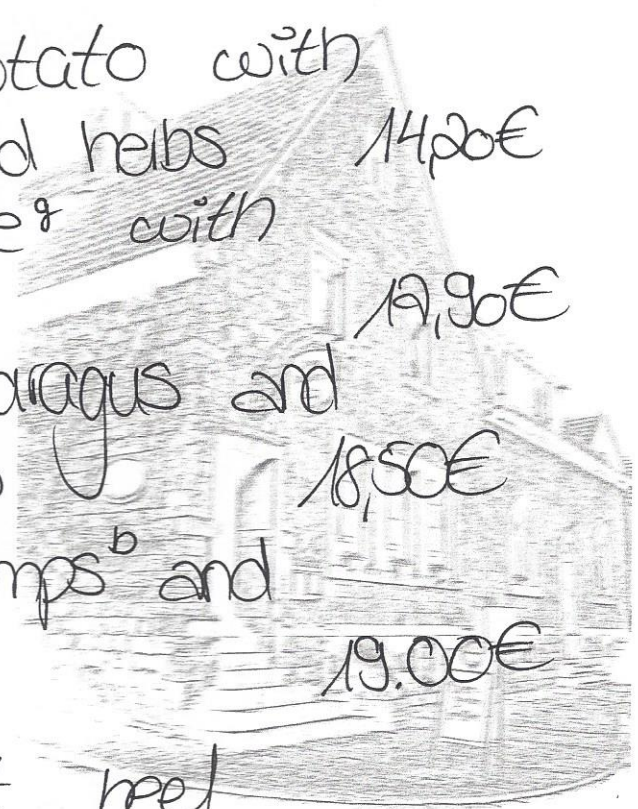 otato with
d herbs 14,20€
e g with
12,90€
aragus and
18,50€
mps b and
19.00€